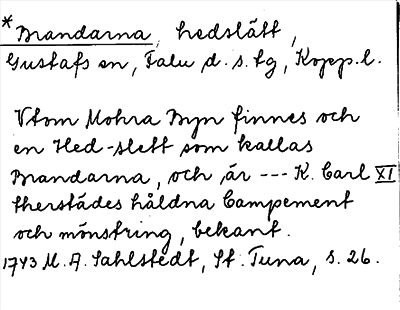 * Brandarna, hedslätt,
Gustafs sn, Falu d. s. tg, Kopp. l.
Vtom Mohra Byn finnes och
en Hed-slett som kallas
Brandarna, och är --- K. Carl XI
therstädes håldna Campement
och mönstring, bekant.
1743 M. A. Sahlstedt, St. Tuna, s. 26.